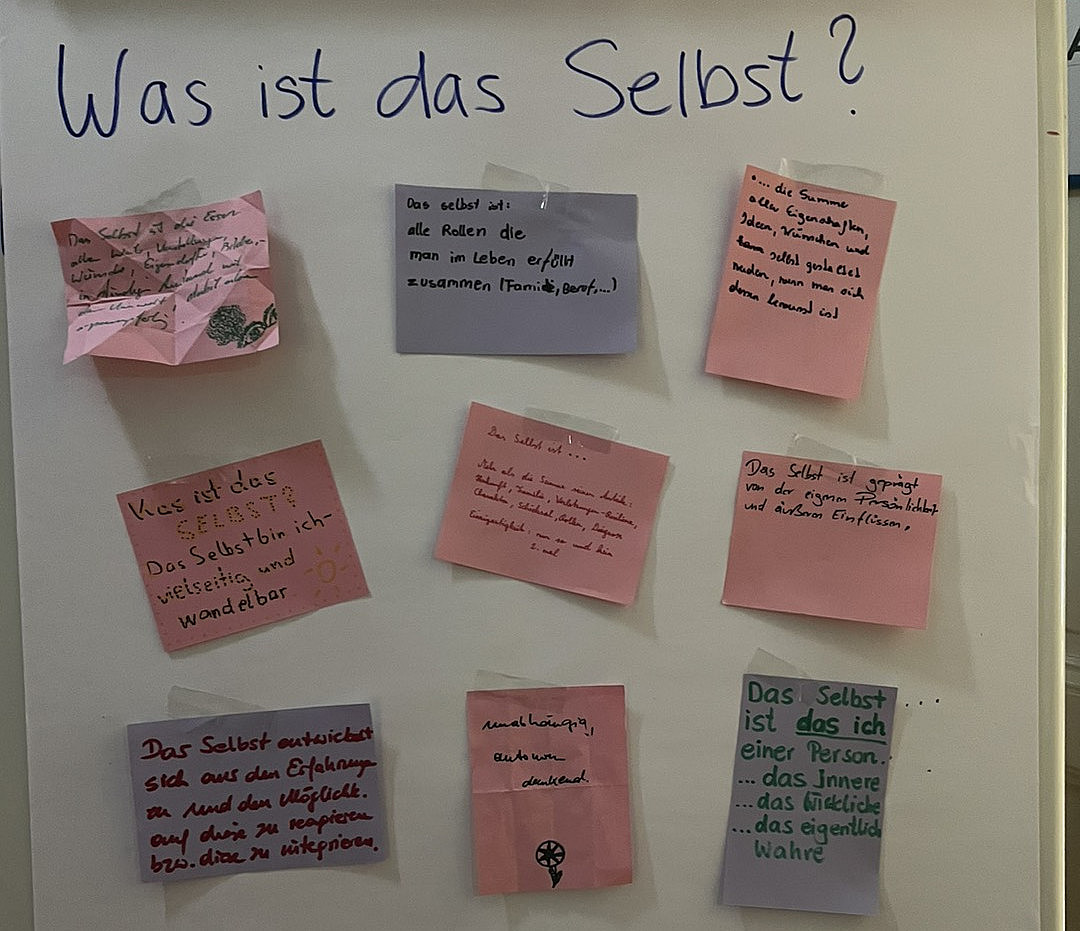 Was ist das Selbst?
Das Selbst ist die
alle
Wünsche, Eigenschaften, Bilder,
in
der Umwelt,
Das selbst ist:
alle Rollen die
man im Leben erfüllt
zusammen (Familie, Beruf,...)
"... die Summe
aller Eigenschaften,
Ideen, Wünschen und
kann selbst gestaltet
werden, wenn man sich
dessen bewusst ist
Was ist das
SELBST?
Das Selbst bin ich-
vielseitig und
wandelbar
Das Selbst ist ...
Mehr als die Summe seiner
Herkunft, Familie,
Charakter, Schicksal, Rollen,
Einzigartigkeit: nur so und kein
2. mal
Das Selbst ist geprägt
von der eigenen Persönlichkeit
und äußeren Einflüssen.
Das Selbst entwickelt
sich aus den Erfahrungen
zu und den Möglichk.
auf diese zu reagieren
bzw. diese zu integrieren.
unabhängig,
autonom
denkend.
Das Selbst ...
ist das ich
einer Person..
... das Innere
... das Wirkliche
... das eigentlich
Wahre